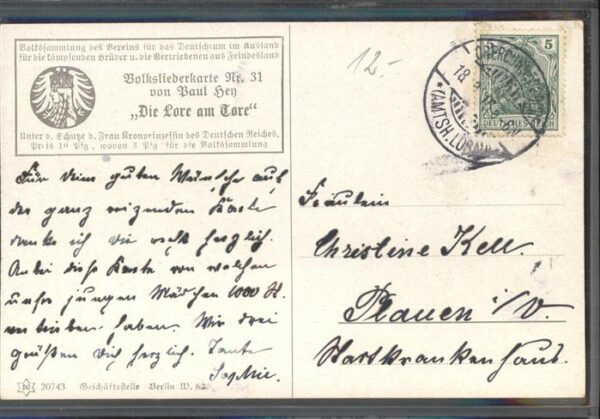 Volkssammlung des Vereins für das Deutschtum im Ausland
für die kämpfenden Brüder u. die Vertriebenen aus Feindesland
Volksliederkarte Nr. 31
von Paul Hey
„Die Lore am Tore“
Unter d. Schutze d. Frau Kronprinzessin des Deutschen Reiches.
Preis 10 Pfg., wovon 3 Pfg für die Volkssammlung
12.-
5
DEUTSCHES REICH
18
(AMTSH.
Für deine guten Wünsche auf
der ganz reizenden Karte
danke ich dir recht herzlich.
Anbei diese Karte von welchen
unsre jungen Mädchen 1000 St.
vertrieben haben. Wir drei
grüßen dich herzlich. Tante
Sophie.
Fräulein
Christine Kell.
Plauen i/V.
Stadtkrankenhaus.
20743 Geschäftsstelle Berlin W. 62